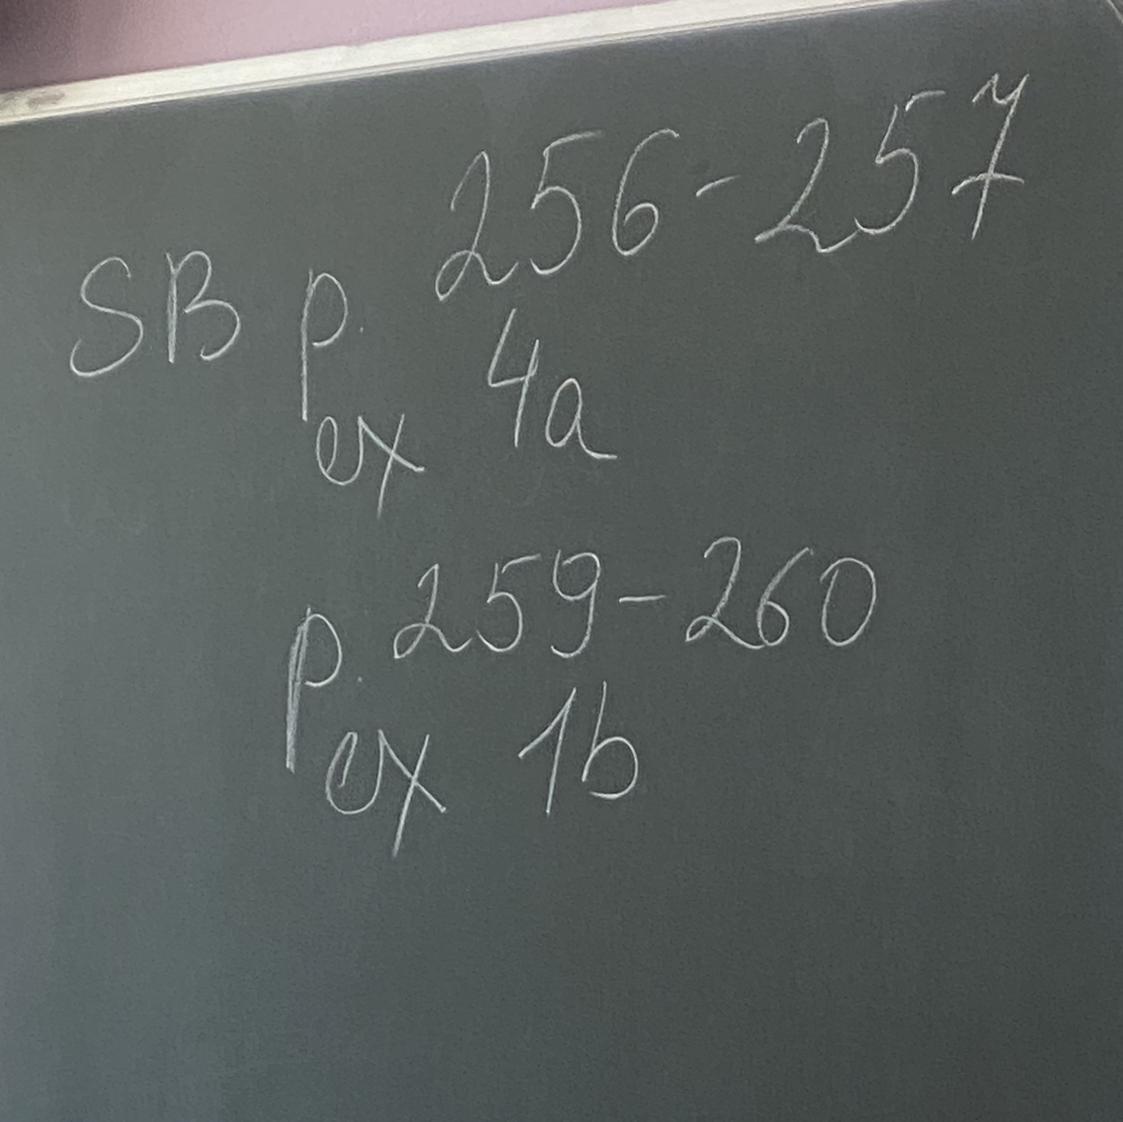 SB p. 256-257
ex 4a
p. 259-260
ex 1b